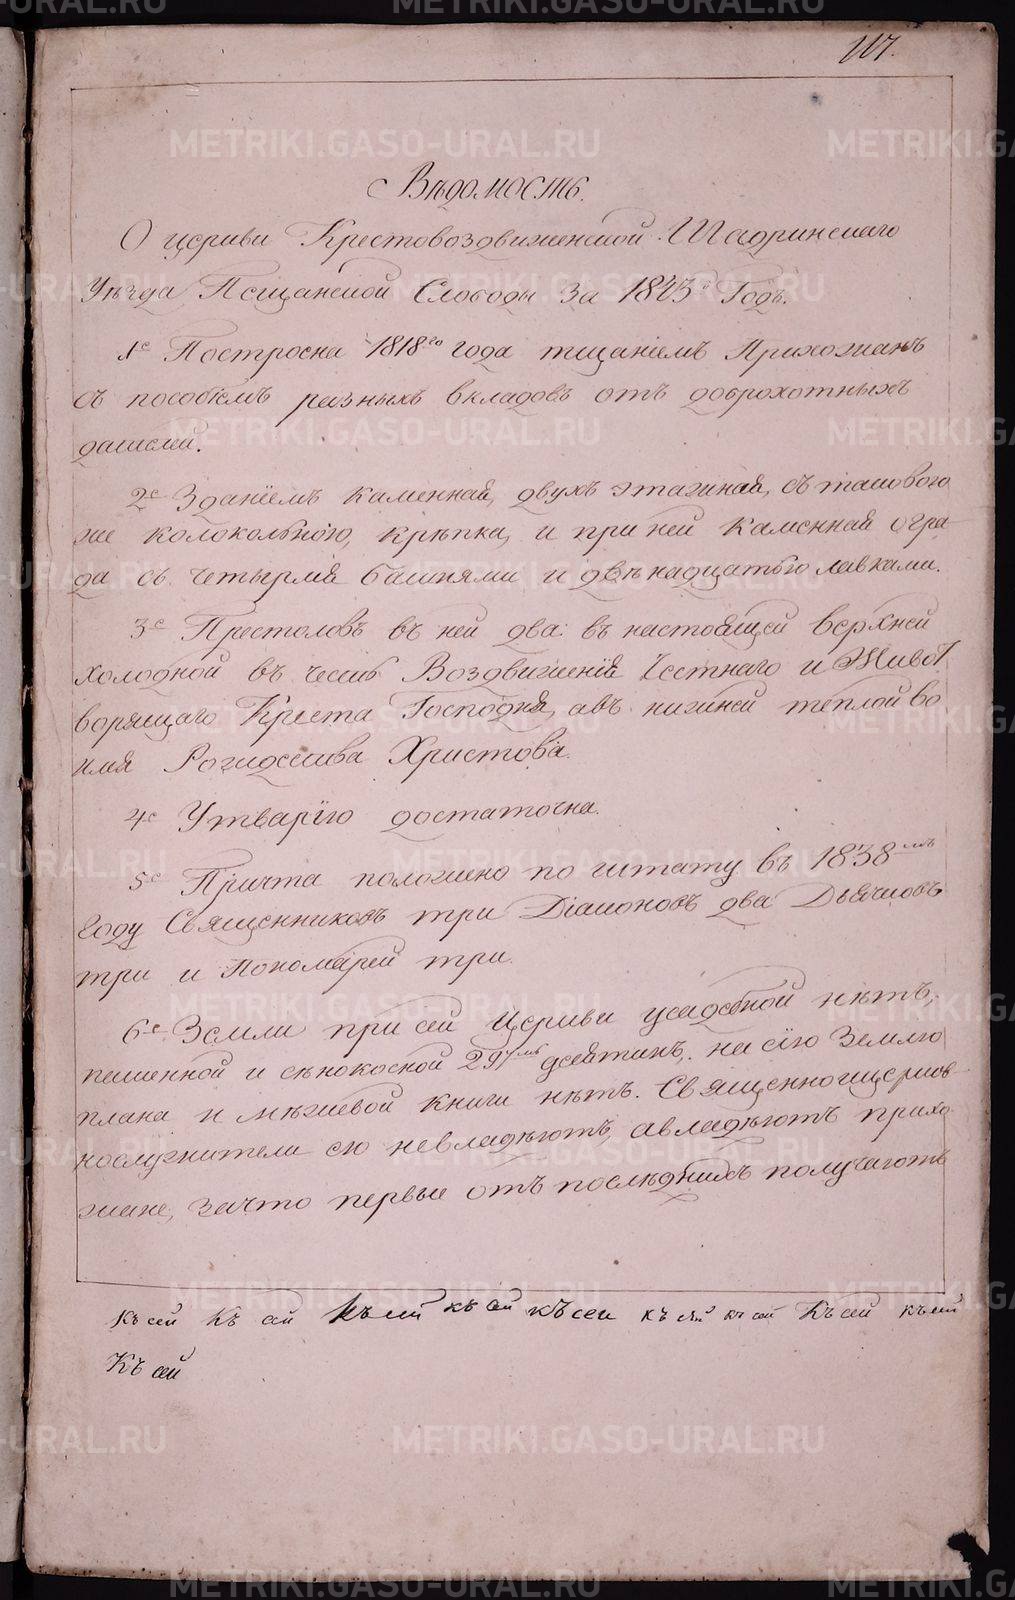 117.
Вѣдомость.
О церкви Крестовоздвиженской Шадринскаго
Уѣзда Песчанской Слободы за 1843й Годъ.
1е Построена 1818го года тщанiемъ Прихожанъ
съ пособiемъ разныхъ вкладовъ отъ доброхотныхъ
дателей.
2е Зданiемъ каменная, двухъ этажная, съ таковою
же колокольнею, крѣпка, и при ней каменная огра-
да съ четырмя башнями и двѣнадцатью лавками.
3е Престоловъ въ ней два: въ настоящей верхней
холодной въ честь Воздвиженiя Честнаго и Живот
ворящаго Креста Господня, а въ нижней теплой во
имя Рождества Христова.
4е Утварiю достаточна.
5е Причта положено по штату въ 1838мъ
Году Священниковъ три Дiаконовъ два Дьячковъ
три и Пономарей три.
6е Земли при сей Церкви усадебной нѣтъ,
пашенной и сѣнокосной 297мь десятинъ. на сiю землю
плана и мѣжевой книги нѣтъ. Священноицерков-
нослужители ею невладѣютъ, авладѣютъ прихо
жане, зачто первые отъ послѣднихъ получаютъ
къ сей Къ сей Къ сей къ сей къ сеи къ сей къ сей Къ сей къ сей
Къ сей
METRIKI.GASO-URAL.RU